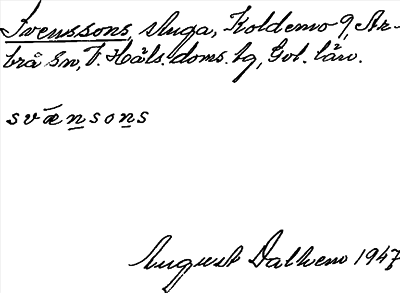 Svenssons stuga, Koldemo 9, Ar-
brå sn, V. Häls. doms. tg, Gvl. län.
svænsons
August Dalhem 1947